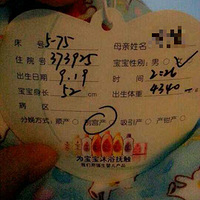 床 号 5-75 母亲姓名
住院号 373925 宝宝性别:男 女
出生日期 9.19 时 间 2:26
宝宝身长 52 cm 出生体重 4340
病 区
分娩方式 顺产 剖宫产 吸引产 产钳产
为宝宝沐浴抚触